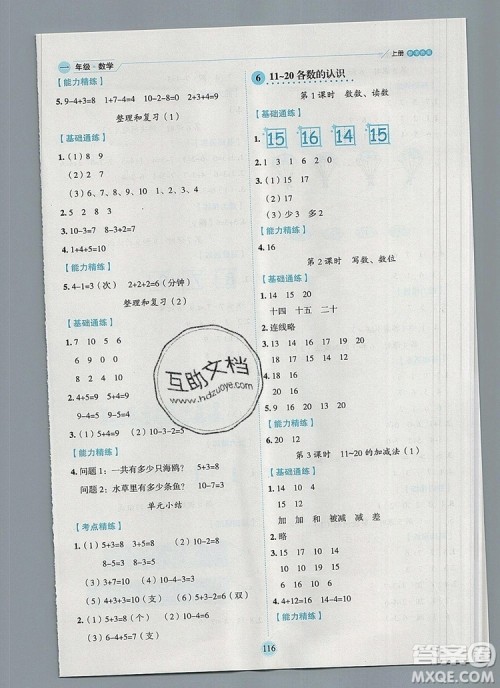 一 年级·数学
【能力精练】
5. 9-4+3=8 1+7-4=4 10-6+5=9
整理和复习(1)
【基础通练】
1.(1)8 9
(2)2 7
(3)6、7、8、9、10
2. 5 2 8 3
3. 10-3=7 9-3=6
4. 1+4+5=10
【能力精练】
5. 4-1=3(次) 2+2+2=6(分钟)
整理和复习(2)
【基础通练】
1. 7 10 5 6
6 9 0 0
8 2 3 4
2. 4+5=9 5+4=9
9-4=5 9-5=4
3.
【能力精练】
4. 问题1:一共有多少只海鸥? 5+3=8
问题2:水草里有多少条鱼? 10-6=4
单元小结
【考点精练】
1.(1)5+3=8 3+5=8
(2)10-2=8 10-8=2
(3)3+7=10 10-4=6(支)
2.(1)5+4=9(个)(2)10-7=3(个)
(3)6-4+5=7(支)
上册
6 11~20各数的认识
第1课时 数数、读数
【基础通练】
1. 15 16 14 15
2. 1 3 1 5
3.(1)15 17
(2)17
(3)少3 多3
【能力精练】
4. 16
第2课时 写数、数位
【基础通练】
1. 14 15 20
十四 十五 二十
2. 连线略
3. 20 19 18 17 14
4. 略
5.
【能力精练】
6. 20 12
第3课时 11~20的加减法(1)
【基础通练】
1. 14 17 12 10 10 10
加 加 和 被减 减 差
2. 略
3. 16 19 10 10
4. 4+12=16 14-4=10
【能力精练】
116
互助文档
www.hdzuoye.com
答案圈
MXQE.COM